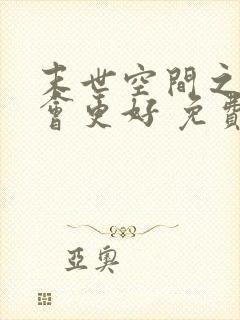 末世空間之
會更好 免費
亞奧